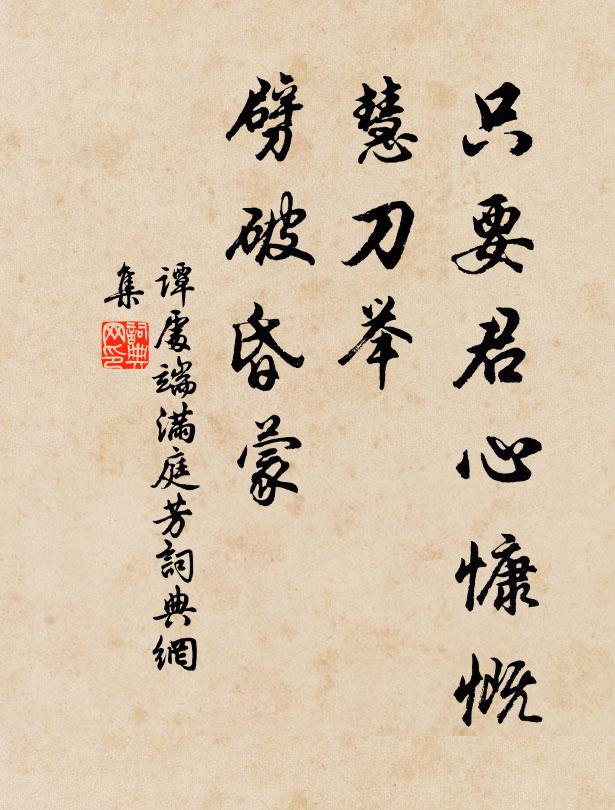 只要君心慷慨
慧刀举
劈破昏蒙
谭處端满庭芳詞典網
集
詞典
网印